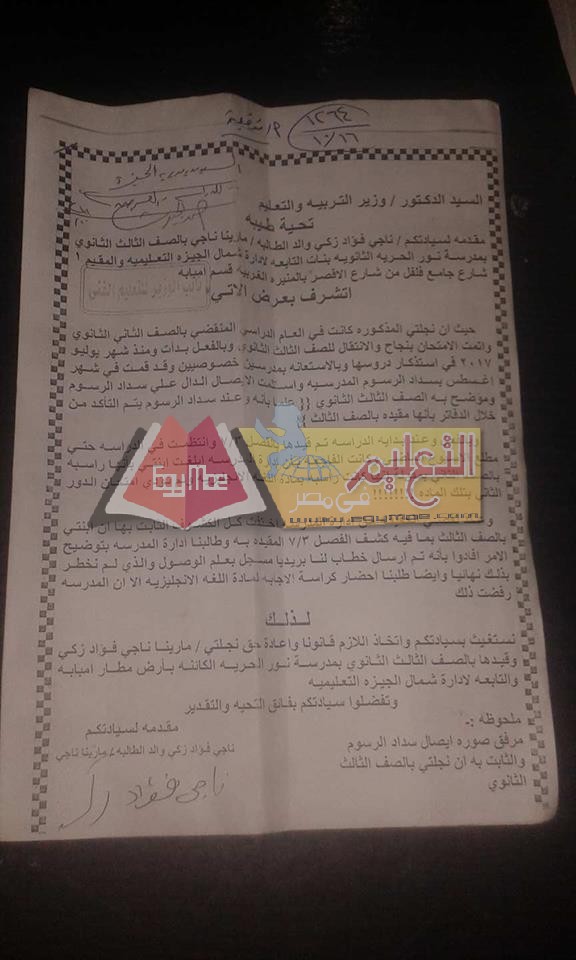 ١٢٦٤
١٠/١٦
السيد الدكتور / وزير التربيه والتعليم
تحية طيبه
مقدمه لسيادتكم / ناجي فؤاد زكي والد الطالبه / مارينا ناجي بالصف الثالث الثانوي
بمدرسة نور الحريه الثانويه بنات التابعه لادارة شمال الجيزه التعليميه والمقيم ١
شارع جامع فلفل من شارع الاقصر بالمنيره الغربيه قسم امبابه
نائب الوزير للتعليم الفني
اتشرف بعرض الاتي
حيث ان نجلتي المذكوره كانت في العام الدراسي المنقضي بالصف الثاني الثانوي
واتمت الامتحان بنجاح والانتقال للصف الثالث الثانوي وبالفعل بدأت ومنذ شهر يوليو
٢٠١٧ في استذكار دروسها وبالاستعانه بمدرسين خصوصيين وقد قمت في شهر
اغسطس بسداد الرسوم المدرسيه واستلمت الايصال الدال علي سداد الرسوم
وموضح به الصف الثالث الثانوي علما بأنه وعند سداد الرسوم يتم التأكد من
خلال الدفاتر بأنها مقيده بالصف الثالث
وعند بدايه الدراسه تم قيدها بالفصل ٧/٣ وانتظمت في الدراسه حتي
مطلع وكانت الفاجعه ادارة المدرسه ابلغت ابنتي بأنها راسبه
مادة اللغه امتحان الدور
الثاني بتلك الماده !!!!!!
التعليم
في مصر
www.egymoe.com
EGYMOE
كل الثابت بها ان ابنتي
بالصف الثالث بما فيه كشف الفصل ٧/٣ المقيده به وطالبنا ادارة المدرسه بتوضيح
الامر افادوا بأنه تم ارسال خطاب لنا بريديا مسجل بعلم الوصول والذي لم نخطر
بذلك نهائيا وايضا طلبنا احضار كراسة الاجابه لمادة اللغه الانجليزيه الا ان المدرسه
رفضت ذلك
لذلك
نستغيث بسيادتكم واتخاذ اللازم قانونا واعادة حق نجلتي / مارينا ناجي فؤاد زكي
وقيدها بالصف الثالث الثانوي بمدرسة نور الحريه الكائنه بأرض مطار امبابه
والتابعه لادارة شمال الجيزه التعليميه
وتفضلوا سيادتكم بفائق التحيه والتقدير
ملحوظه :-
مرفق صوره ايصال سداد الرسوم
والثابت به ان نجلتي بالصف الثالث
الثانوي
مقدمه لسيادتكم
ناجي فؤاد زكي والد الطالبه / مارينا ناجي
ناجي فؤاد زكي